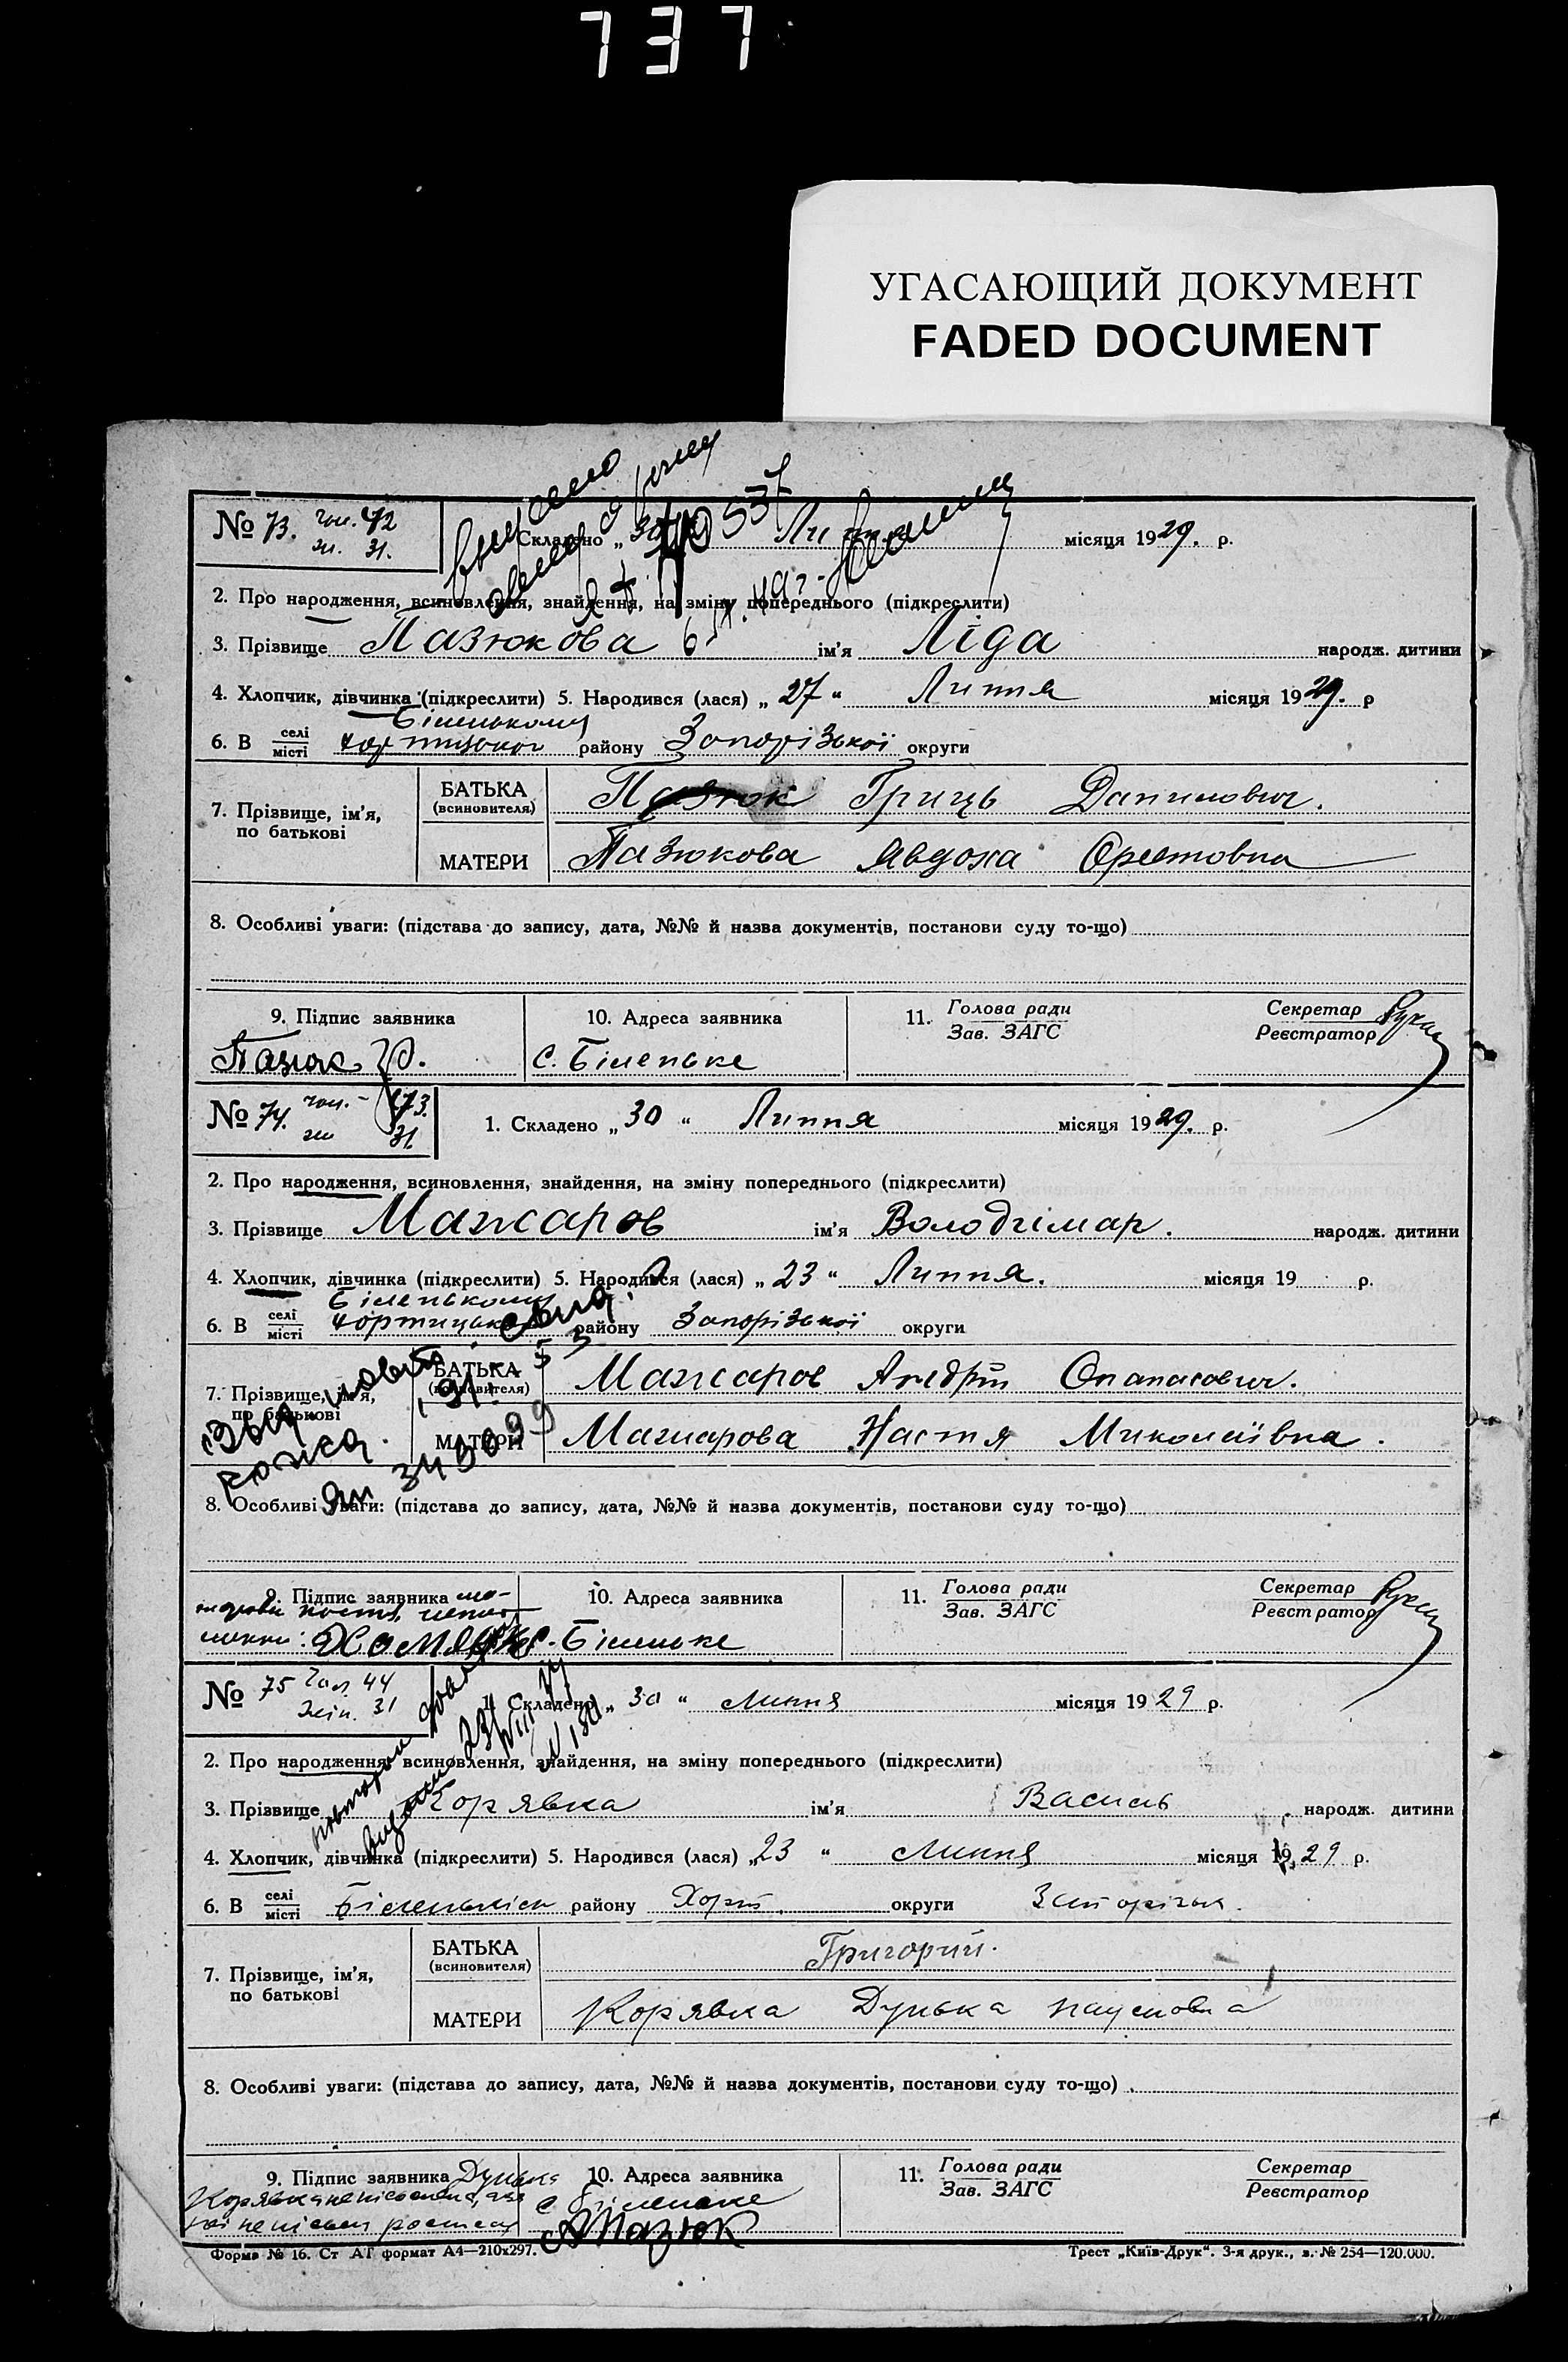 737
УГАСАЮЩИЙ ДОКУМЕНТ
FADED DOCUMENT
№ 73. чол. 42
жи. 31.
Складено „ 30 Липня місяця 1929. р.
2. Про народження, всиновлення, знайдення, на зміну попереднього (підкреслити)
3. Прізвище Пазюкова ім'я Ліда народж. дитини
4. Хлопчик, дівчинка (підкреслити) 5. Народився (лася) „ 27 “ Липня місяця 1929. р
Біленькому
6. В селі/місті Хортицького району Запорізької округи
7. Прізвище, ім'я, по батькові
БАТЬКА (всиновителя) Пазюк Гриць Данилович.
МАТЕРИ Пазюкова Явдоха Орестовна
8. Особливі уваги: (підстава до запису, дата, №№ й назва документів, постанови суду то-що)
9. Підпис заявника 10. Адреса заявника 11. Голова ради Секретар
Зав. ЗАГС Реєстратор
Пазюк Гр. С. Біленьке
№ 74. чол. - 43.
жи 31.
1. Складено „ 30 “ Липня місяця 1929. р.
2. Про народження, всиновлення, знайдення, на зміну попереднього (підкреслити)
3. Прізвище Мажаров ім'я Володімар. народж. дитини
4. Хлопчик, дівчинка (підкреслити) 5. Народився (лася) „ 23 “ Липня. місяця 19 р.
Біленькому
6. В селі/місті Хортицько району Запорізької округи
7. Прізвище, ім'я, по батькові
БАТЬКА (всиновителя) Мажаров Андрій Опанасович.
МАТЕРИ Мажарова Настя Миколаївна.
343099
8. Особливі уваги: (підстава до запису, дата, №№ й назва документів, постанови суду то-що)
9. Підпис заявника 10. Адреса заявника 11. Голова ради Секретар
Зав. ЗАГС Реєстратор
С. Біленьке
№ 75 Чол. 44
Жін. 31
Складено „ 30 “ Липня місяця 1929 р.
2. Про народження, всиновлення, знайдення, на зміну попереднього (підкреслити)
3. Прізвище Корявка ім'я Василь народж. дитини
4. Хлопчик, дівчинка (підкреслити) 5. Народився (лася) „ 23 “ Липня місяця 1929 р.
6. В селі/місті Біленькім району Хорт. округи Запорізьк.
7. Прізвище, ім'я, по батькові
БАТЬКА (всиновителя) Григорий.
МАТЕРИ Корявка Дунька Наумовна
8. Особливі уваги: (підстава до запису, дата, №№ й назва документів, постанови суду то-що)
9. Підпис заявника Дунька 10. Адреса заявника 11. Голова ради Секретар
Зав. ЗАГС Реєстратор
Корявка с Біленьке
Пазюк
Форма № 16. Ст АТ формат А4—210x297.
Трест „Київ-Друк“. 3-я друк., з. № 254—120.000.